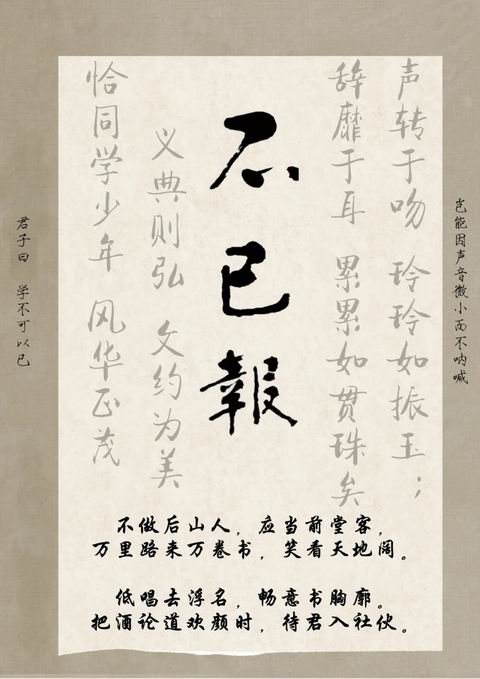 岂能因声音微小而不呐喊
声转于吻 玲玲如振玉；
辞靡于耳 累累如贯珠矣
不已報
义典则弘 文约为美
恰同学少年 风华正茂
君子曰 学不可以已
不做后山人，应当前堂客，
万里路来万卷书，笑看天地阔。
低唱去浮名，畅意书胸廓。
把酒论道欢颜时，待君入社伙。